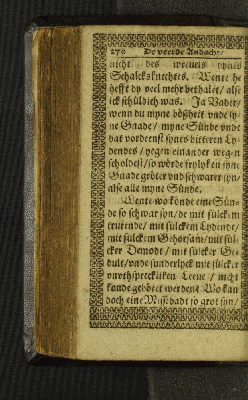 270 De veerde Andacht /
nicht des wreuels dynes
Schalcksknechtes. Wente he
hefft dy veel mehr bethalet / alse
ick schüldich was. Ja Vader /
wenn du myne bößheit vnde sy-
ne Gnade / myne Sünde vnde
dat vordeenst synes bitteren Ly-
dendes / yegen einander wegen
scholdest / so wörde frylyken syne
Gnade gröter vnd schwarer syn /
alse alle myne Sünde.
Wente wo könde eine Sün-
de so schwar syn / de mit sülckem
trurende / mit sülckem Lydende /
mit sülckem Gehorsam / mit sül-
cker Demodt / mit sülcker Ge-
dult / vnde sunderlyck mit sülcker
vnuthspreckliken Leeue / nicht
konde geböetet werden? Wo kan
doch eine Missdadt so grot syn /